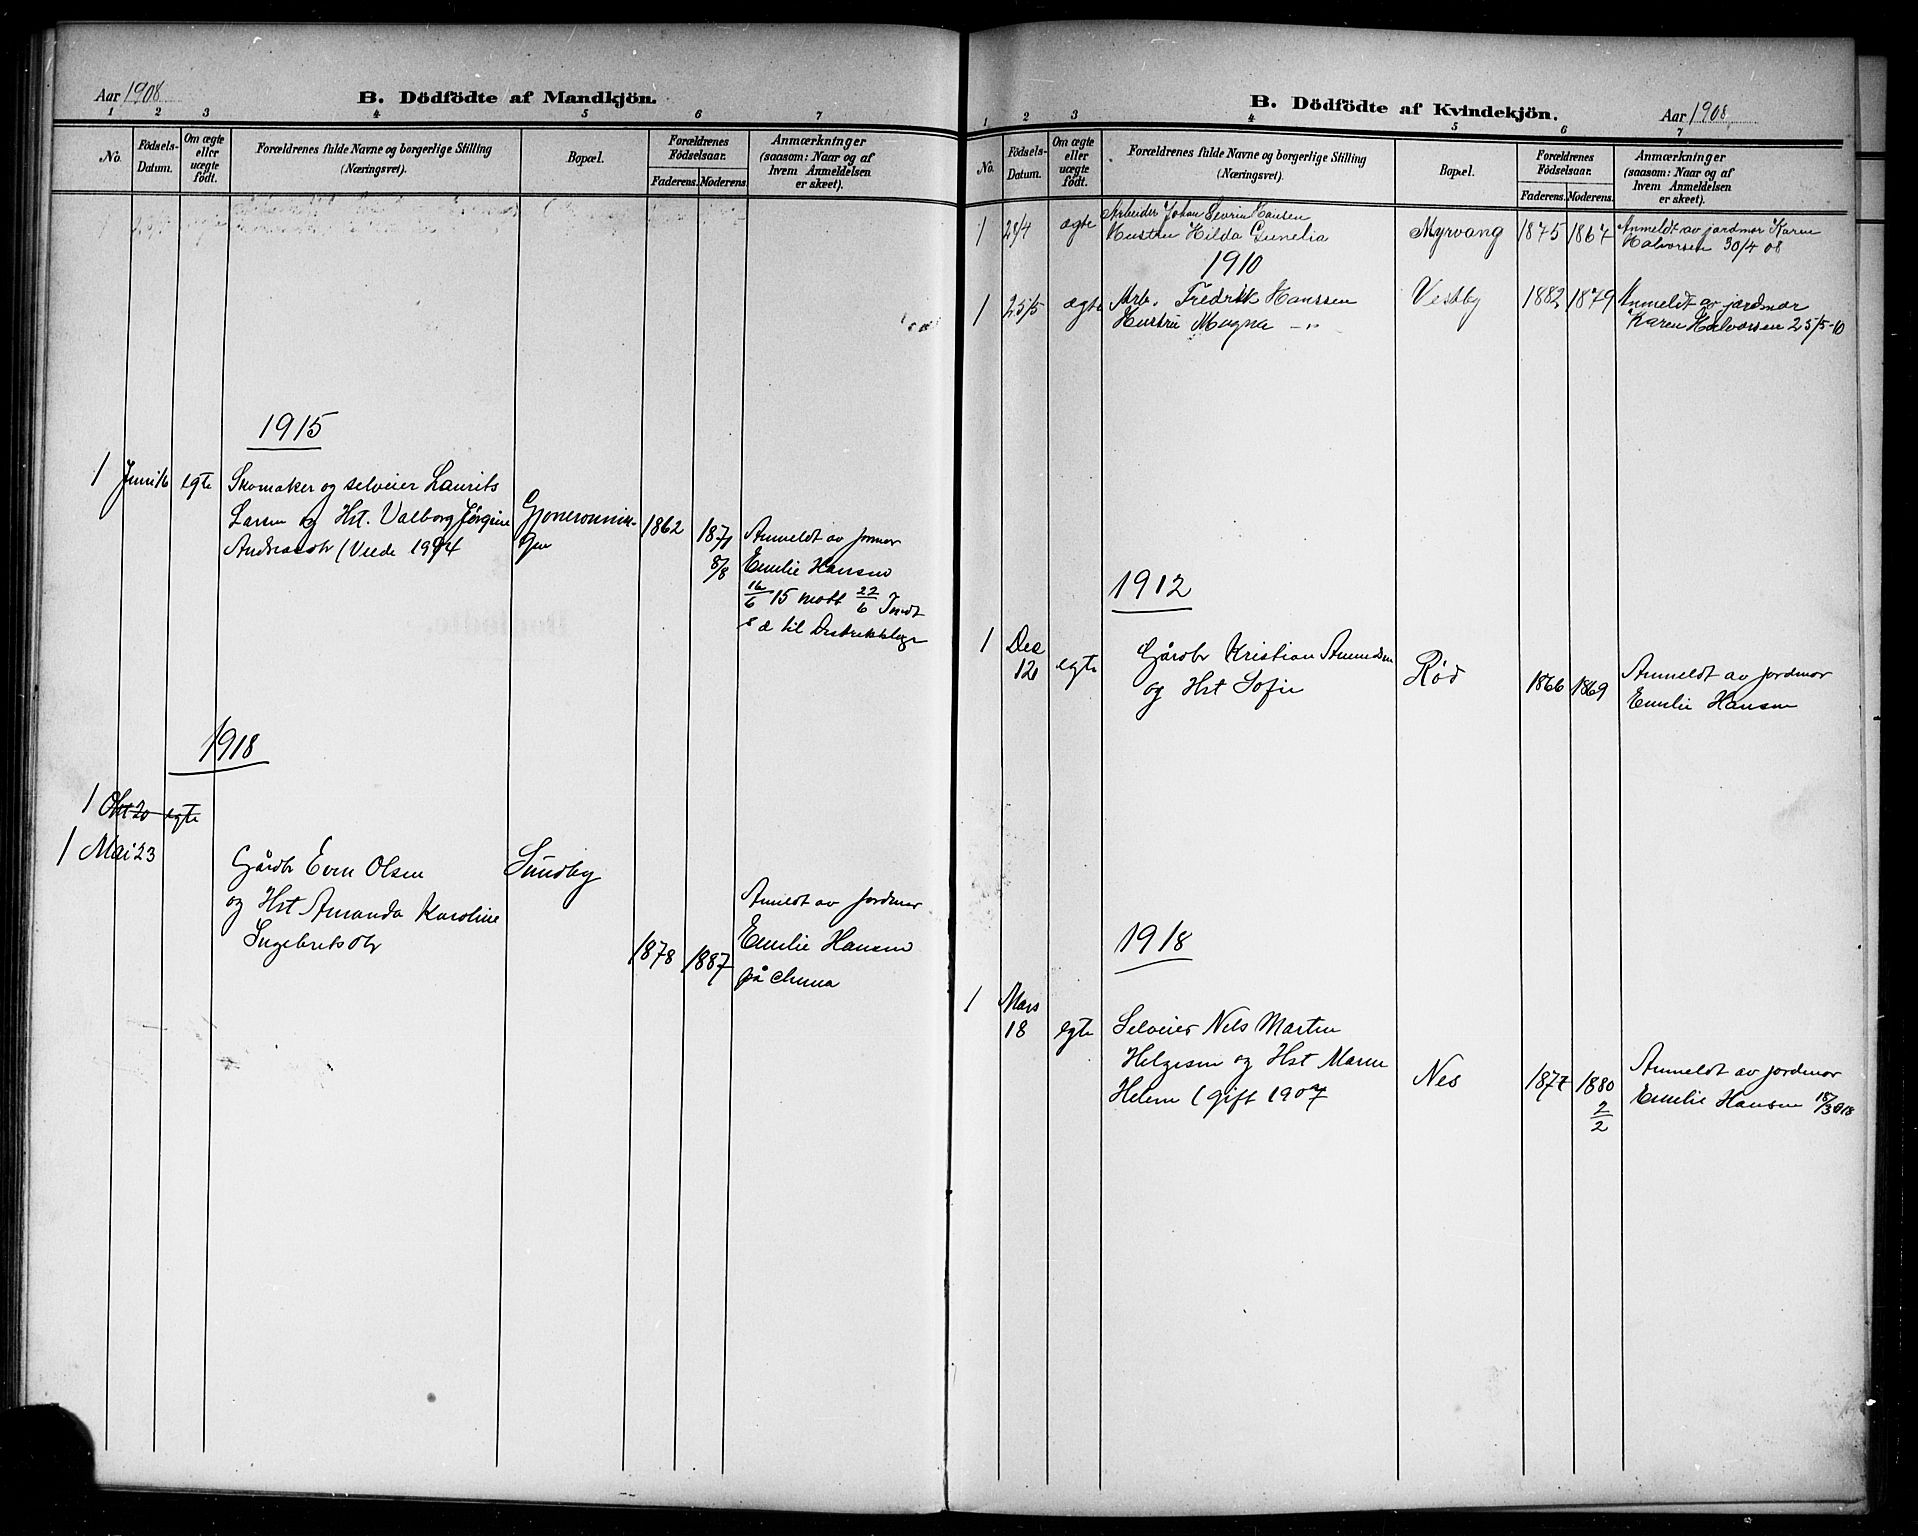 Aar 1908
B. Dödfödte af Mandkjön.
1 2 3 4 5 6 7
No.
Födsels-
Datum.
Om ægte
eller
uægte
födt.
Forældrenes fulde Navne og borgerlige Stilling
(Næringsvei).
Bopæl.
Forældrenes
Födselsaar.
Faderens. Moderens.
Anmærkninger
(saasom: Naar og af
hvem Anmeldelsen
er skeet).
1915
1 Juni 16 egte Skomaker og selveier Laurits
Larsen og Hst. Valborg Jørgine
Andreasdtr (Viede 1994
1862 1871
8/8
Anmeldt av jormor
Emilie Hansen
16/6 15 mott 22/6
s d til
1918
1 Okt 20 egte
1 Mai 23
Gårdbr Even Olsen
og Hst Amanda Karoline
Ingebriktsdtr
Sundby
1878 1887
Anmeldt av jordmor
Emilie Hansen
på
B. Dödfödte af Kvindekjön.
Aar 1908
1 2 3 4 5 6 7
No.
Födsels-
Datum.
Om ægte
eller
uægte
födt.
Forældrenes fulde Navne og borgerlige Stilling
(Næringsvei).
Bopæl.
Forældrenes
Födselsaar.
Faderens. Moderens.
Anmærkninger
(saasom: Naar og af
hvem Anmeldelsen
er skeet).
1 28/4 ægte Arbeider Johan Sevrin Hansen
Hustru Hilda Gunelia
Myrvang 1875 1867
Anmeldt av jordmor Karen
Halvorsen 30/4 08
1910
1 25/5 ægte Arb. Fredrik Hanssen
Hustru Magna -"-
Vestby 1882 1879
Anmeldt av jordmor
Karen Halvorsen 25/5-10
1912
1 Dec
12 egte
Gårdbr Kristian Amundsen
og Hst Sofie
Rød 1866 1869
Anmeldt av jordmor
Emilie Hansen
1918
1 Mars
18 egte
Selveier Nils Martin
Helgesen og Hst Maren
Helene (gift 1907
Nes 1877 1880
2/2
Anmeldt av jordmor
Emilie Hansen 18/3 918